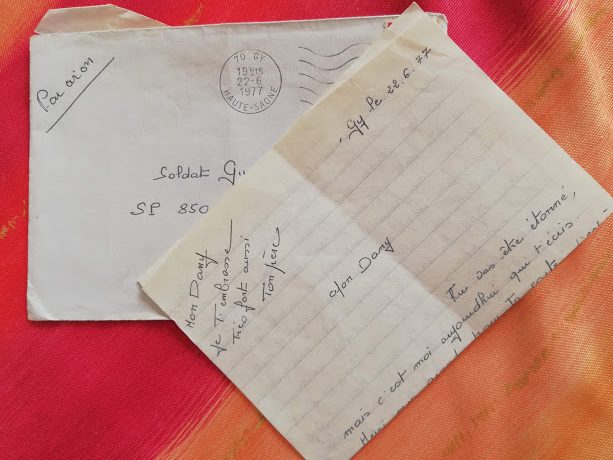 Par avion
70 GY
19H15
22-6
1977
HAUTE-SAONE
Soldat
SP 850
Gy le 22.6.77
Mon Dany
Tu vas être étonné,
mais c'est moi aujourd'hui qui t'écris.
Ta carte
Mon Dany
je T'embrasse
Très fort aussi
Ton père